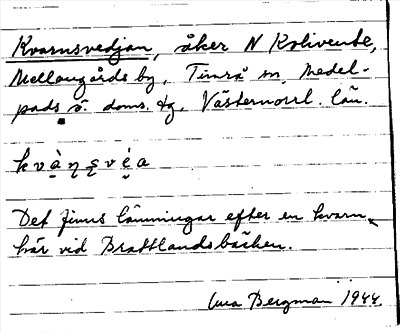 Kvarnsvedjan, åker N Kolivente,
Mellangårds by, Timrå sn, Medel-
pads ö. doms. tg, Västernorrl. län.
Det finns lämningar efter en kvarn
här vid Brattlandsbäcken.
Bergman 1944.